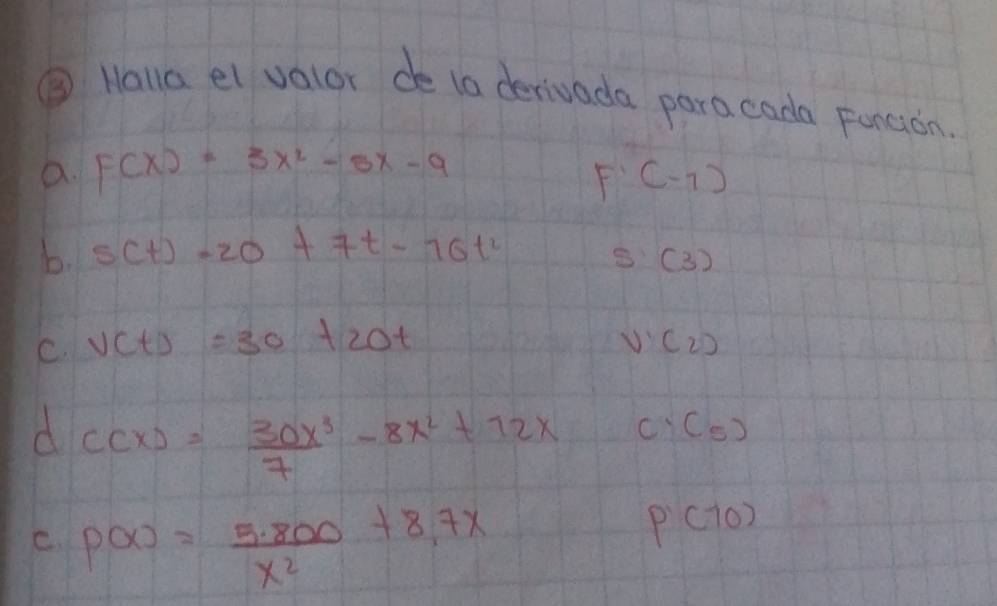 ③ Halla el valor de la derivada para cada Función.
a. F(x) = 3x² - 5x - 9 F'(-1)
b. s(t) = 20 + 7t - 16t² s'(3)
c. v(t) = 30 + 20t v'(2)
d c(x) = 30x³/7 - 8x² + 12x c'(5)
e. p(x) = 5.800/x² + 8,7x p'(10)